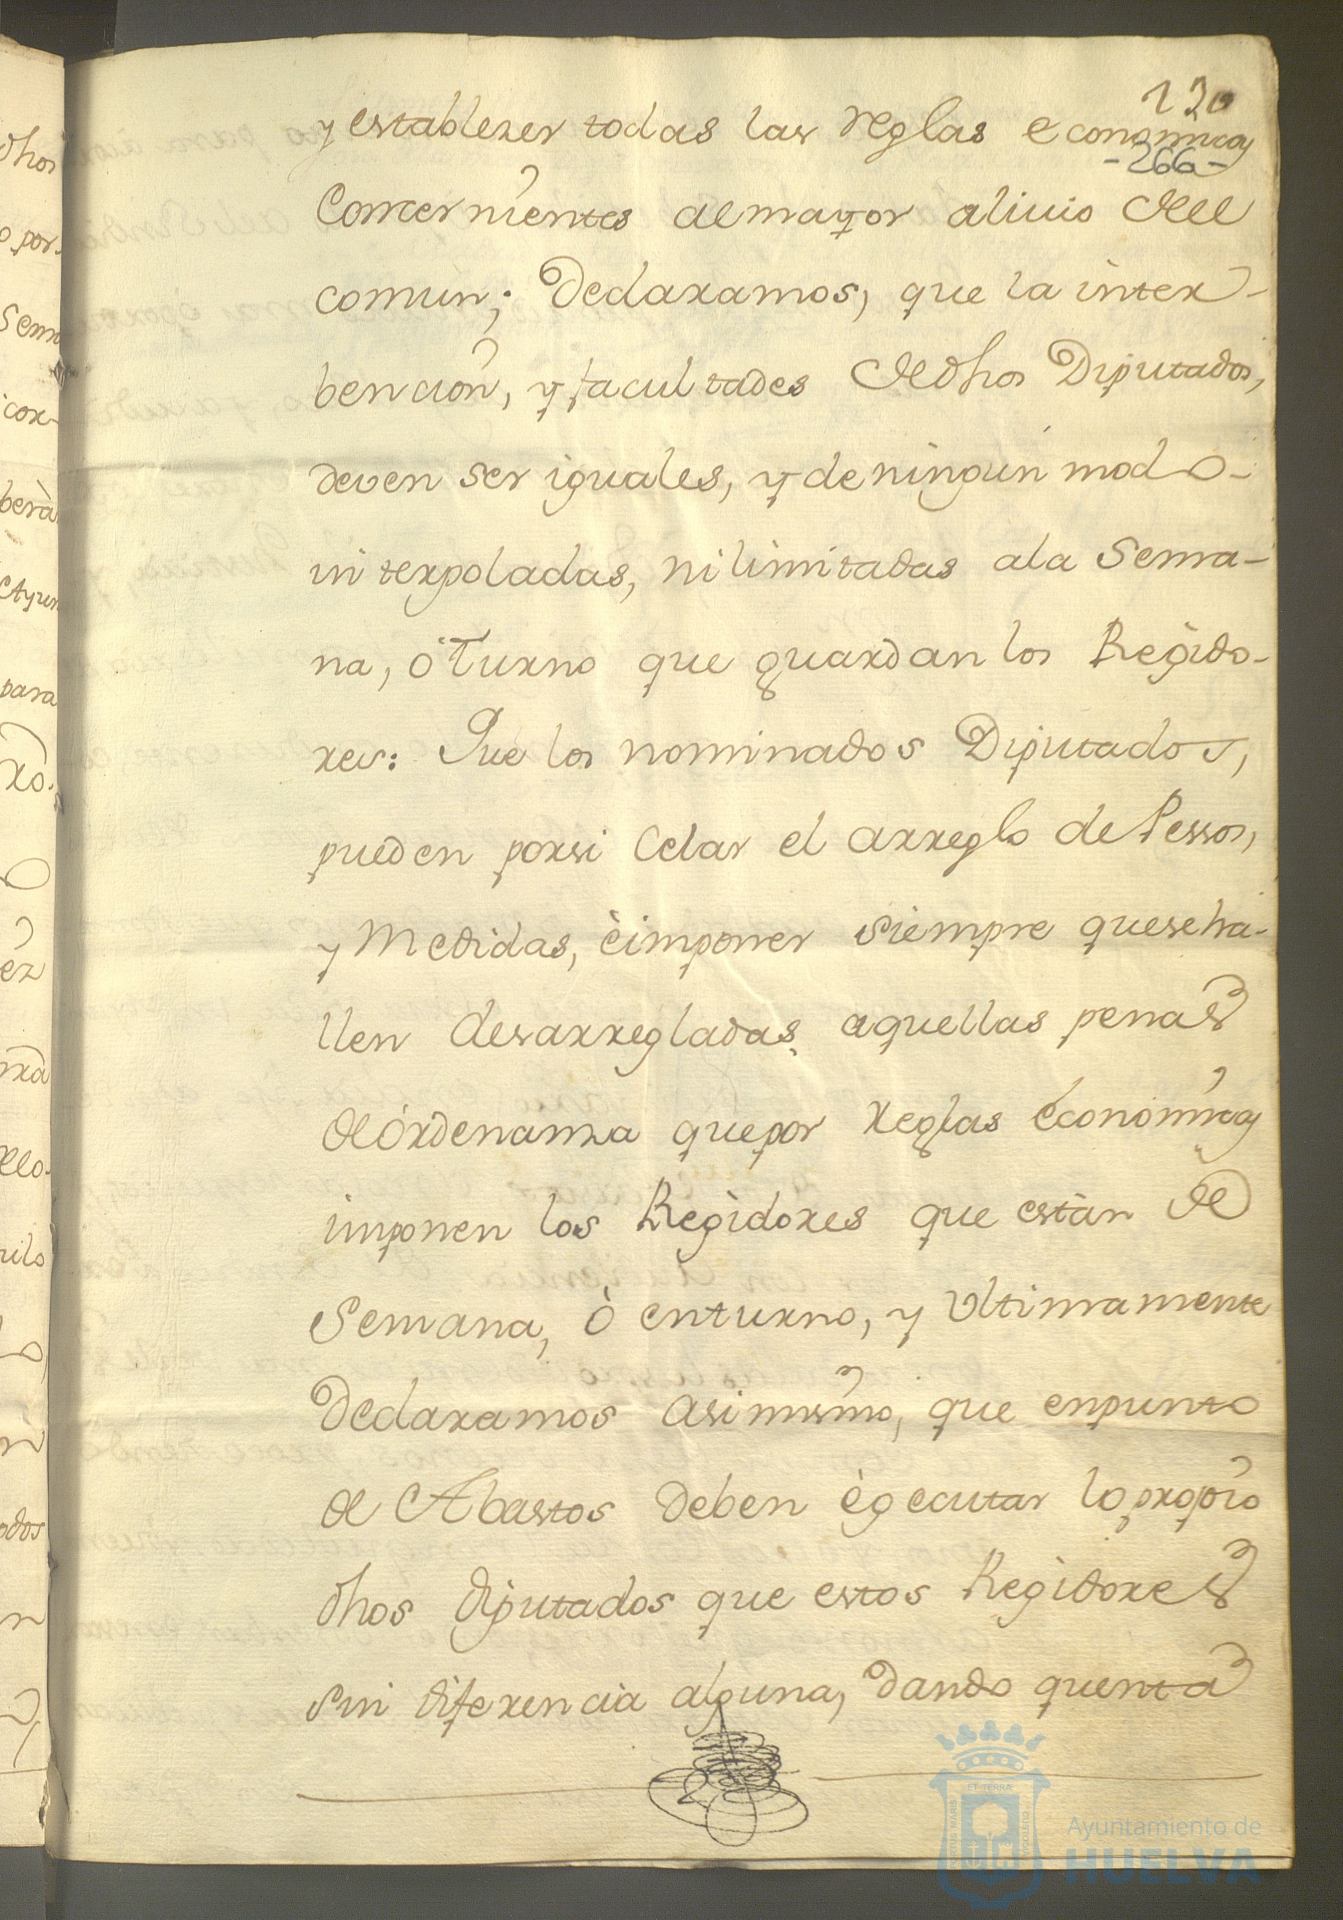 130
y establezer todas las reglas economicas
-266-
Concernientes al mayor alivio del
comun; Declaramos, que la inter-
bencion, y facultades de dhos Diputados,
deven ser iguales, y de ningun modo-
interpoladas, ni limitadas a la Sema-
na, ò Turno que guardan los Regido-
res: Que los nominados Diputados,
pueden porsi Celar el arreglo de Pessos,
y Medidas, è imponer siempre que se ha-
llen desarregladas, aquellas penas
de órdenanza que por reglas économicas
imponen los Regidores que estàn de
Semana, ò enturno, y Ultimamente
Declaramos asimismo, que en punto
de Abastos deben ègecutar lo propio
dhos diputados que estos Regidores
sin diferencia alguna, dando quenta
dhos
por
cox-
berà
Ayun
para
xo.
ez
llo.
odos
ET TERRÆ
Ayuntamiento de
HUELVA